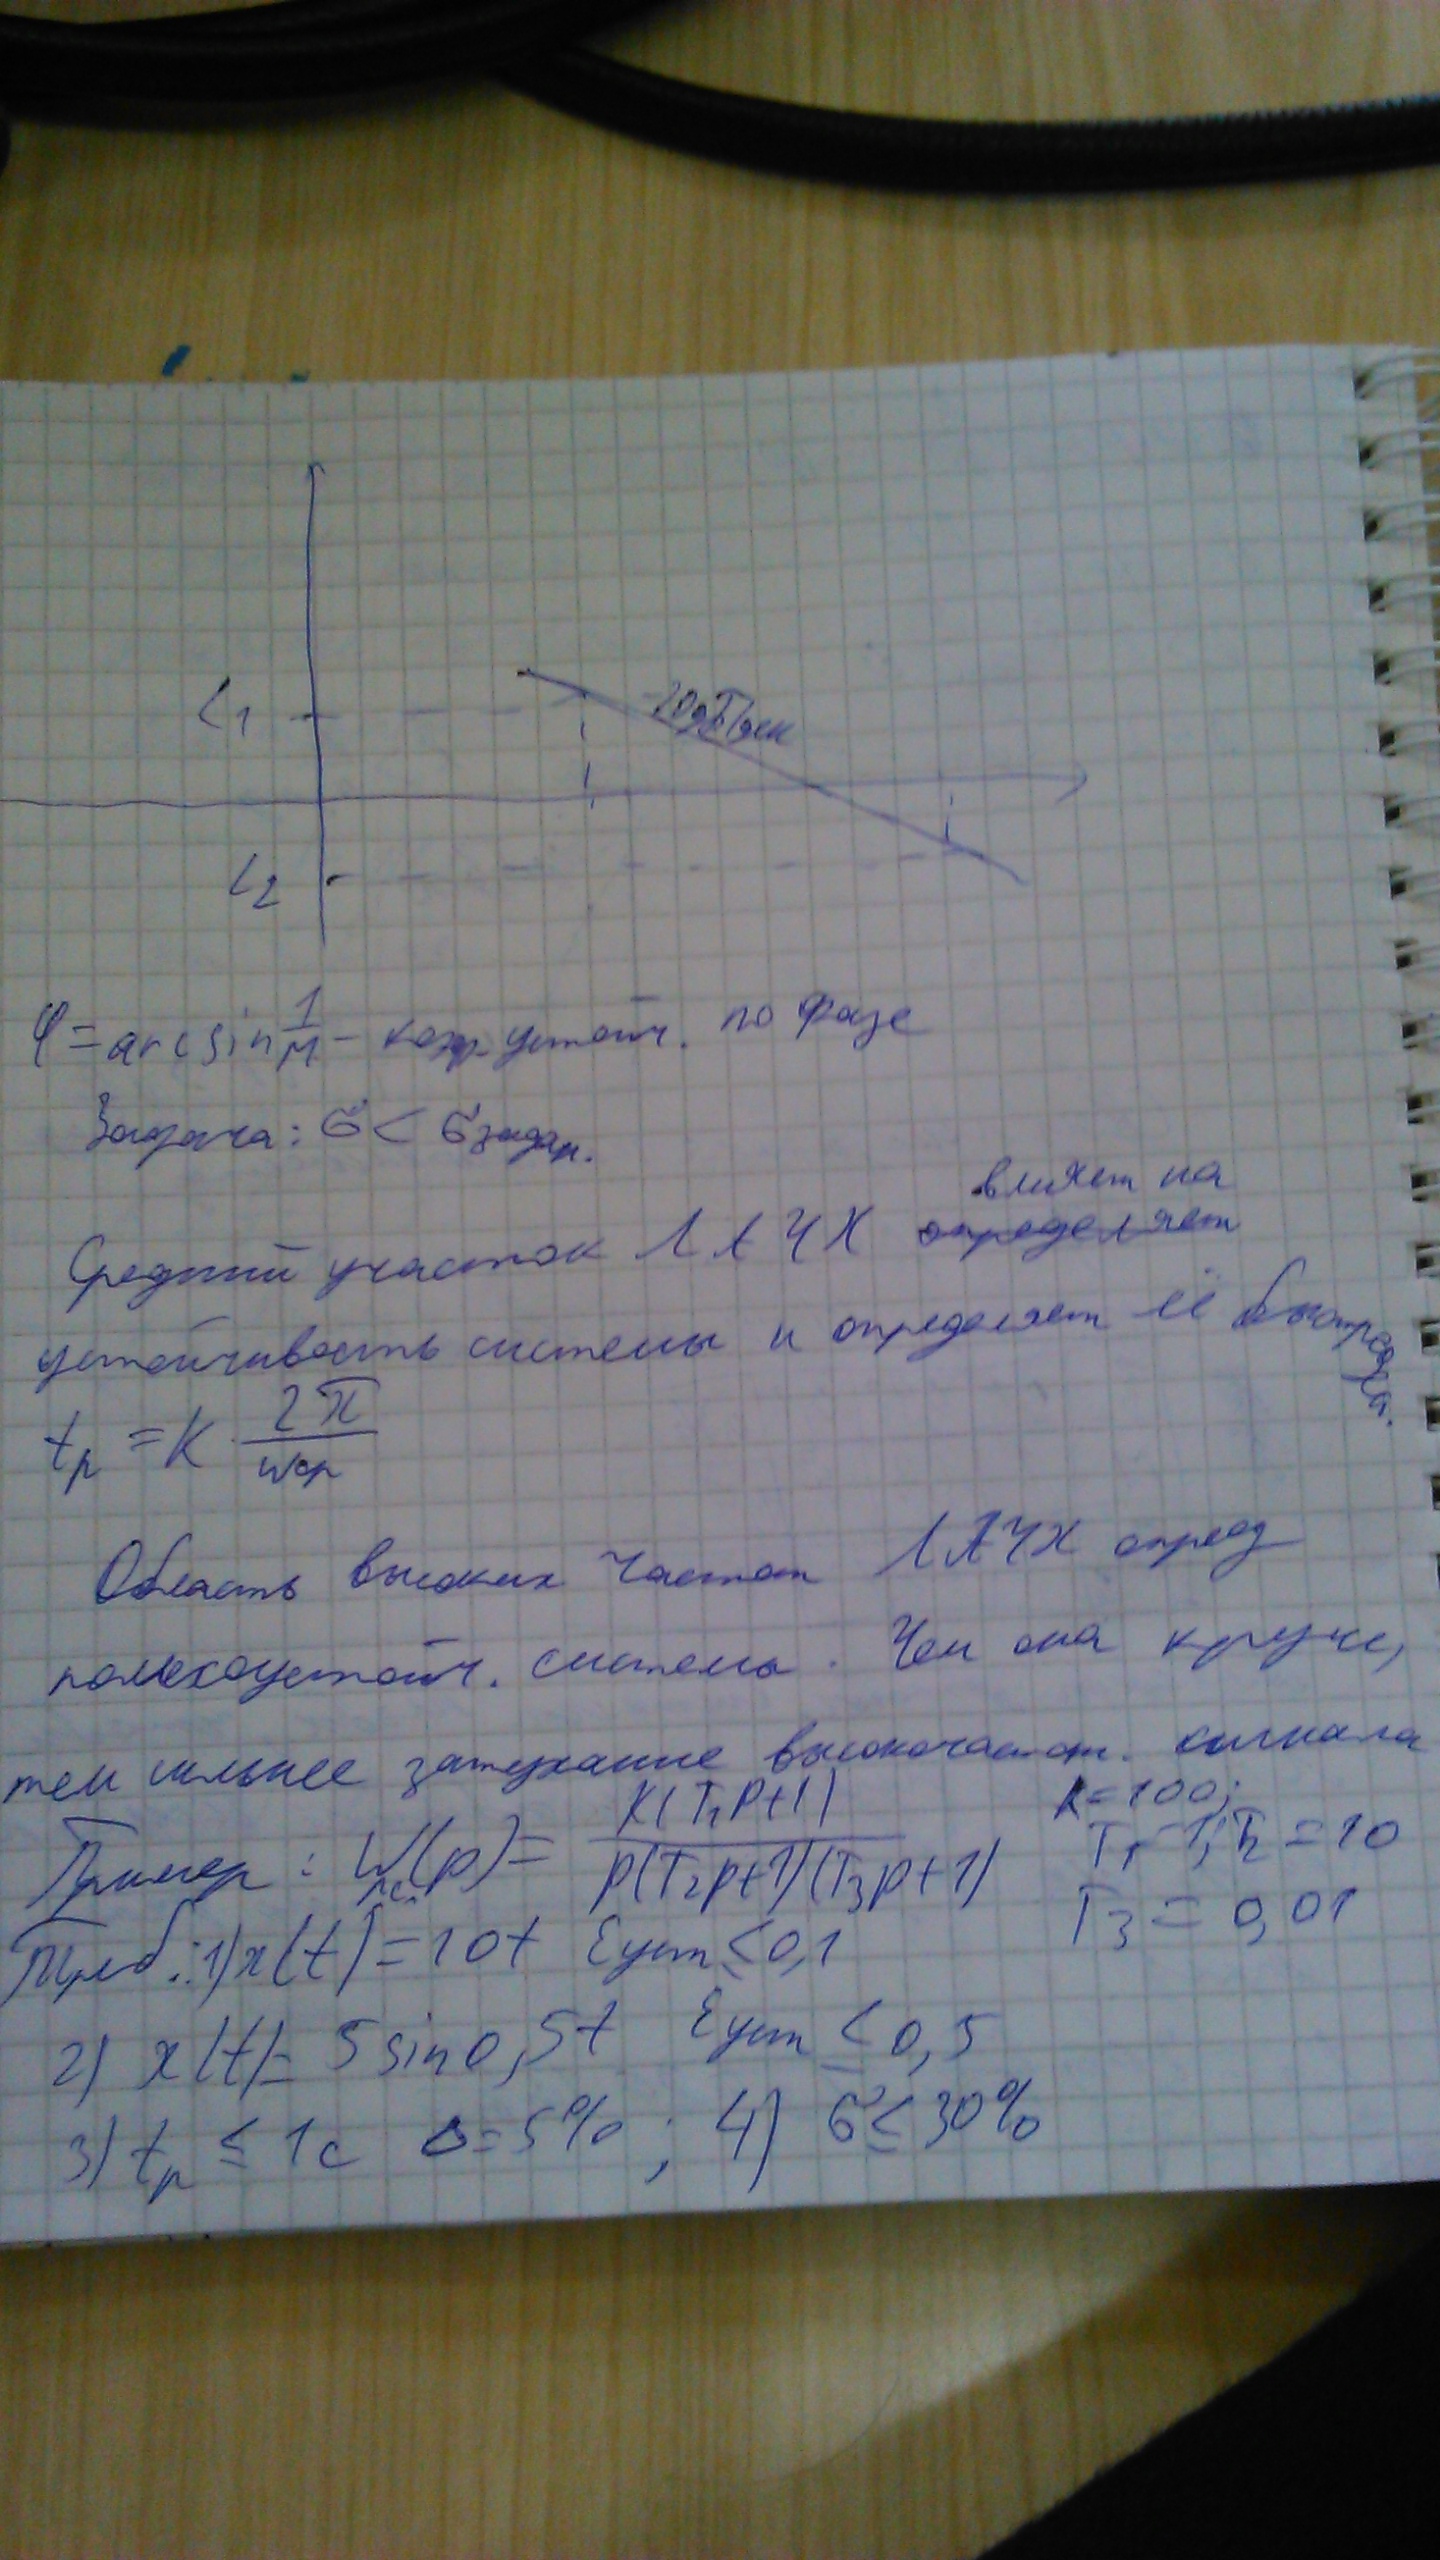 L1
-20дБ/дек
L2
φ = arcsin 1/M - коэр. устойч. по фазе
Задача: σ < σ задан.
влияет на
Средний участок ЛАЧХ определяет
устойчивость системы и определяет её быстрод.
tp = K 2π/ωср
Область высоких частот ЛАЧХ опред
помехоустойч. системы. Чем она круче,
тем сильнее затухание высокочастот. сигнала
K=100;
Пример: W(p) = K(T1p+1)/p(T2p+1)(T3p+1)
T1=1; T2=10
T3=0,01
Треб.: 1) x(t)=10t Eуст ≤ 0,1
2) x(t)= 5sin0,5t Eуст ≤ 0,5
3) tp ≤ 1c Δ=5%; 4) σ ≤ 30%